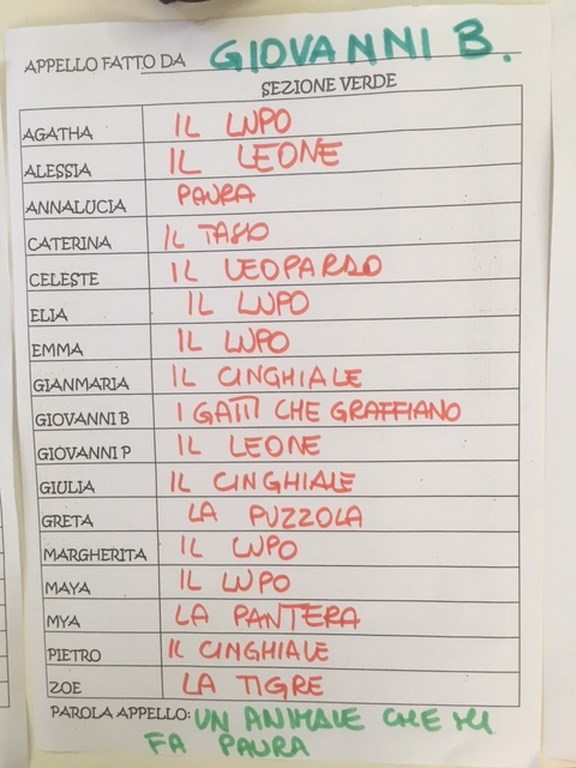 APPELLO FATTO DA GIOVANNI B.
SEZIONE VERDE
AGATHA IL LUPO
ALESSIA IL LEONE
ANNALUCIA PAURA
CATERINA IL TASSO
CELESTE IL LEOPARDO
ELIA IL LUPO
EMMA IL LUPO
GIANMARIA IL CINGHIALE
GIOVANNI B I GATTI CHE GRAFFIANO
GIOVANNI P IL LEONE
GIULIA IL CINGHIALE
GRETA LA PUZZOLA
MARGHERITA IL LUPO
MAYA IL LUPO
MYA LA PANTERA
PIETRO IL CINGHIALE
ZOE LA TIGRE
PAROLA APPELLO: UN ANIMALE CHE MI
FA PAURA